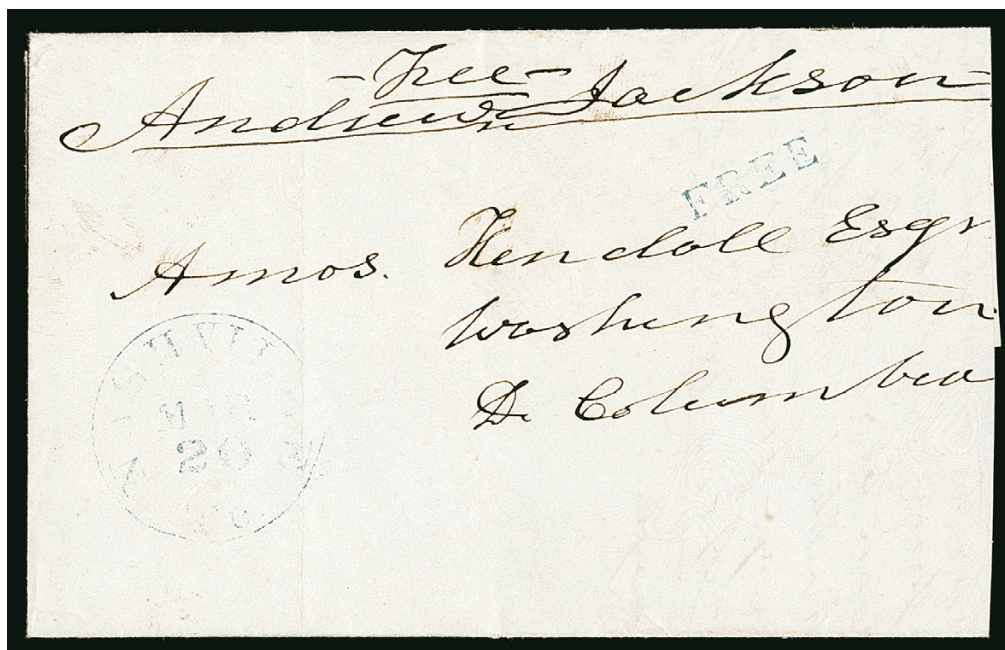 - Free -
Andrew Jackson
FREE
Amos. Kendall Esqr
Washington
D. Columbia
NASHVILLE
MAR
20